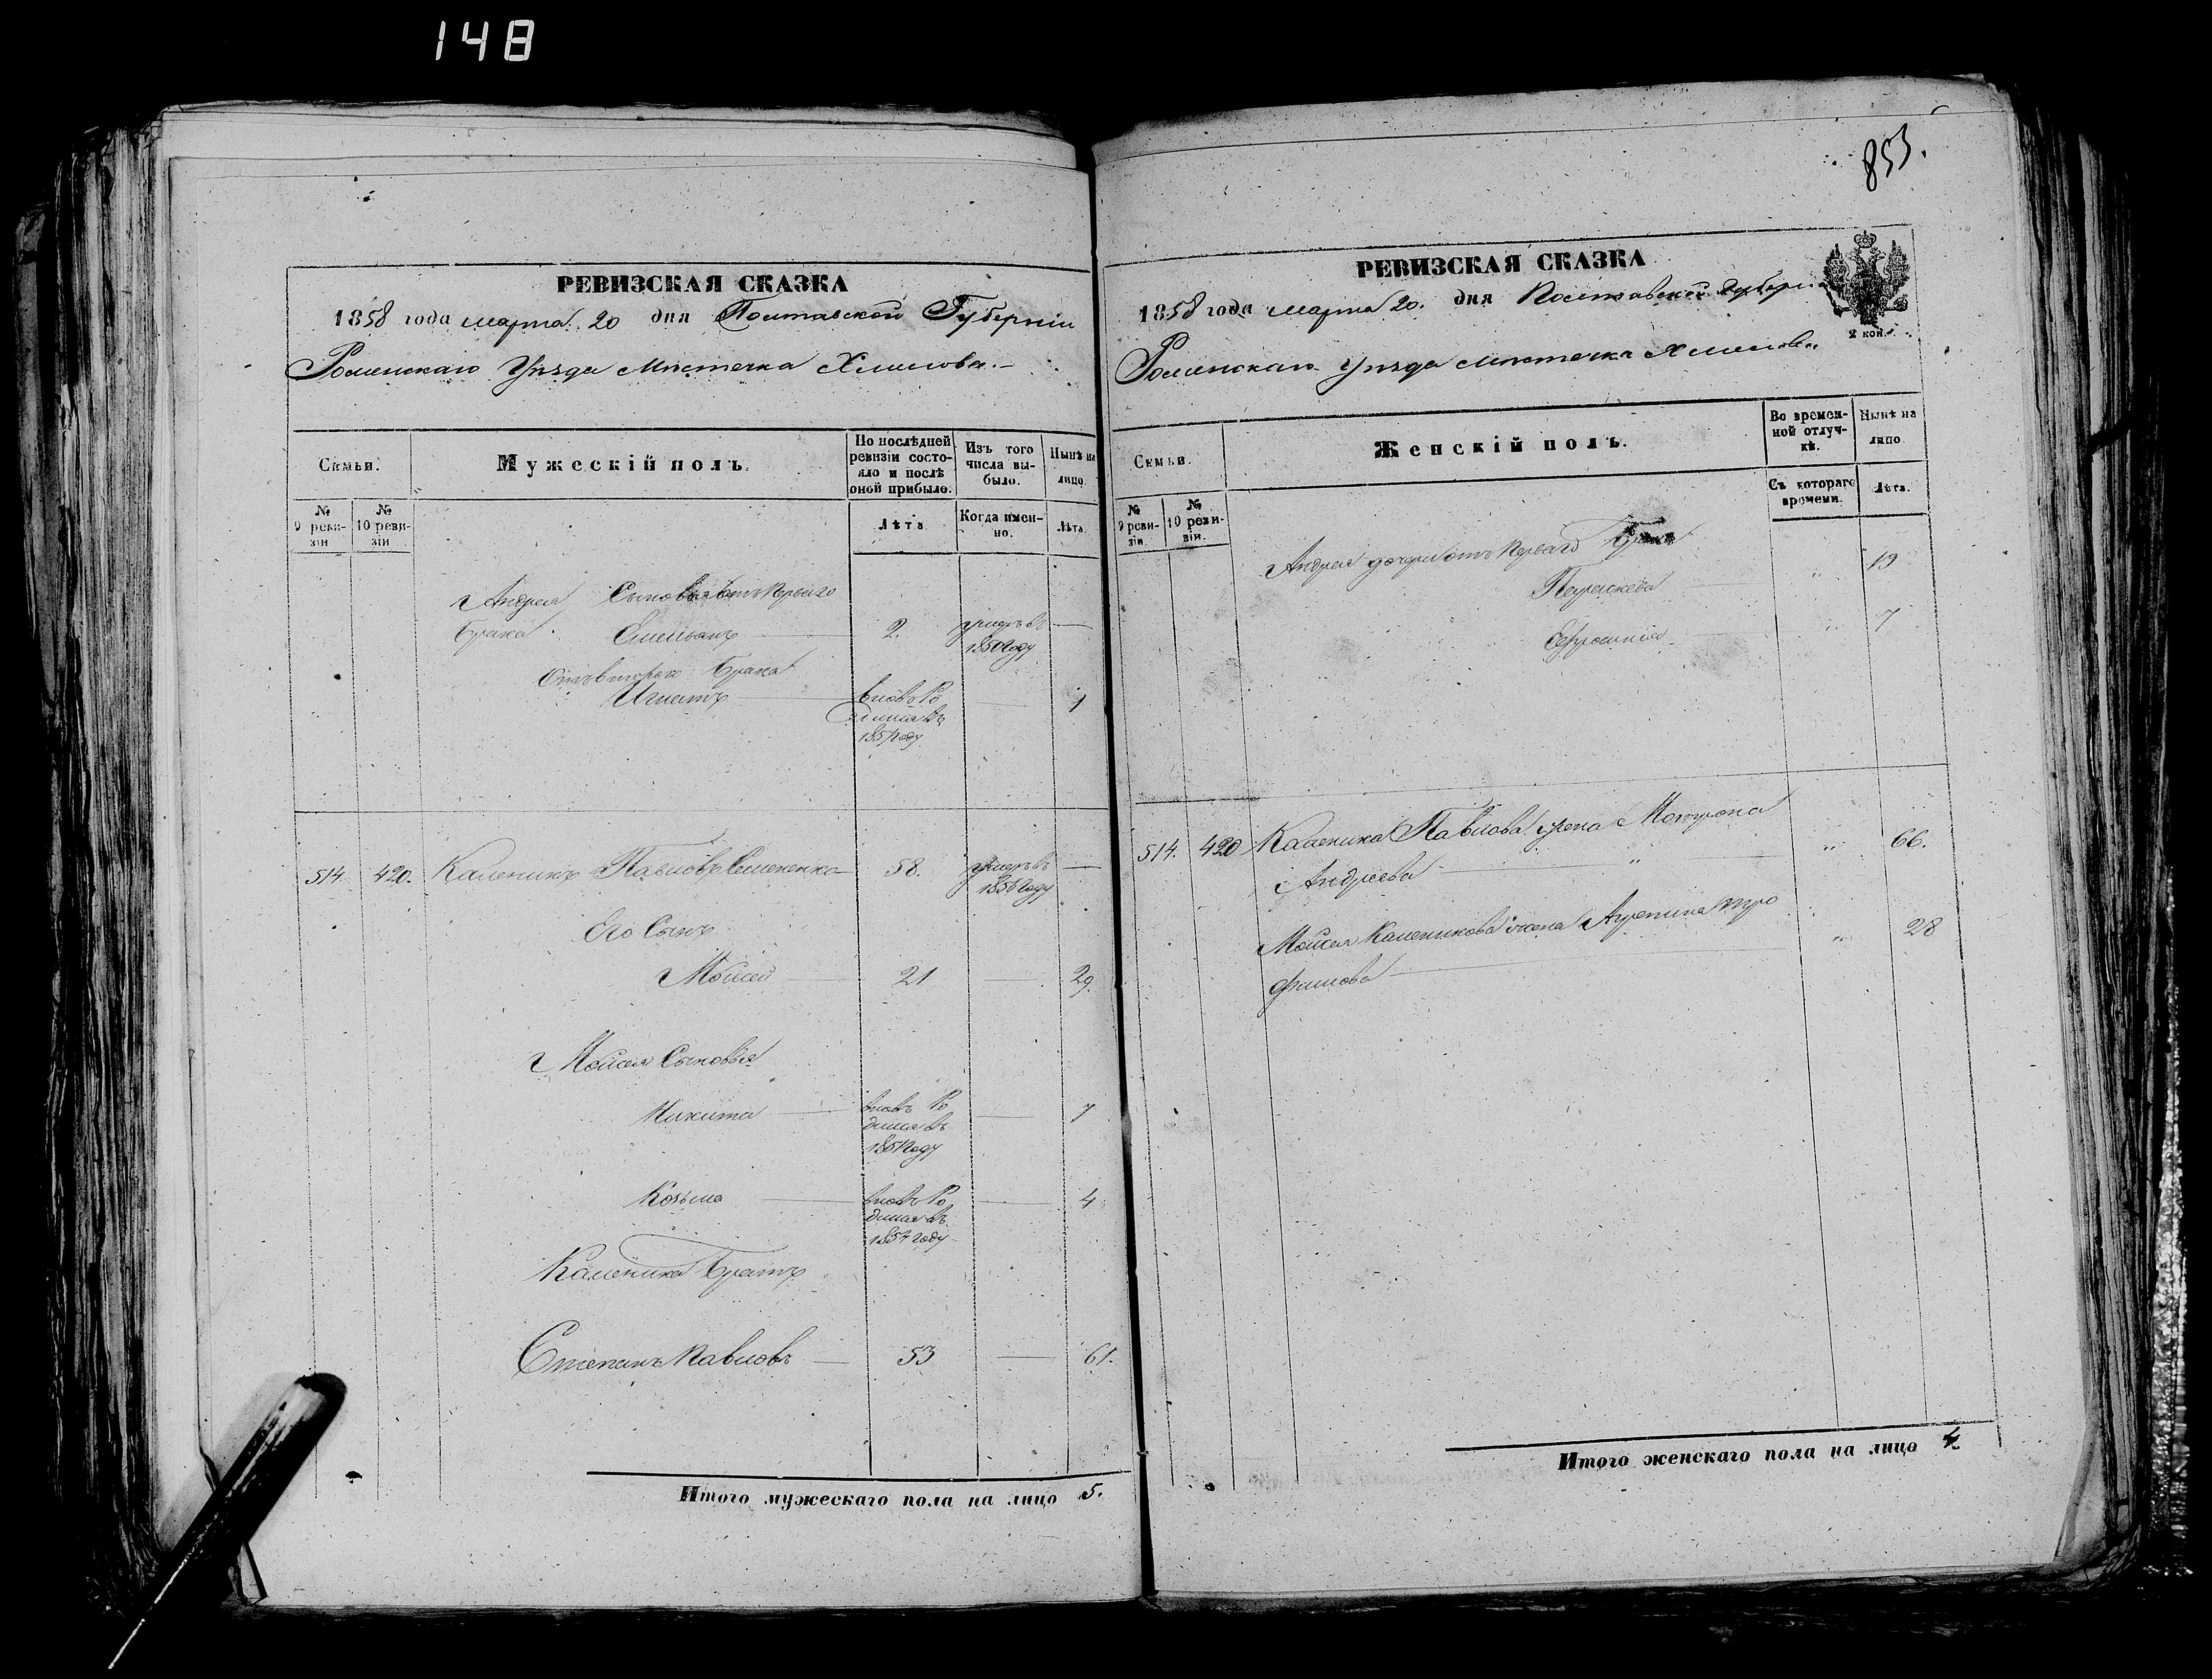 148
РЕВИЗСКАЯ СКАЗКА
1858 года марта 20 дня Полтавской Губерніи
Роменскаго Уѣзда Мѣстечка Хмелова.
Семьи.
Мужескій полъ.
По послѣдней ревизіи состояло и послѣ оной прибыло.
Изъ того числа выбыло.
Нынѣ на лицо.
№ 9 ревизіи
№ 10 ревизіи
Лѣта
Когда именно.
Лѣта.
Андрея Сыновья отъ перваго
брака Емельянъ 2. умеръ въ 1850 году
Отъ втораго брака
Игнатъ вновь родился въ 1857 году 1
514. 420. Каленикъ Павловъ Семененко 58. умеръ въ 1856 году
Его Сынъ
Мойсей 21 29.
Мойсея Сыновья
Никита вновь родился въ 1851 году 7
Козьма вновь родился въ 1854 году 4
Каленика братъ
Степанъ Павловъ 53 61.
Итого мужескаго пола на лицо 5.
853.
РЕВИЗСКАЯ СКАЗКА
1858 года марта 20. дня Полтавской Губерніи
2 коп.
Роменскаго Уѣзда Мѣстечка Хмелова
Семьи.
Женскій полъ.
Во временной отлучкѣ.
Нынѣ на лицо
№ 9 ревизіи.
№ 10 ревизіи.
Съ котораго времени.
Лѣта.
Андрея дочери отъ перваго брака
Параскева " 19
Ефросинія " 7
514. 420 Каленика Павлова жена Мотрона
Андреева " " 66.
Мойсея Каленикова жена Агрепина Тро
фимова " 28
Итого женскаго пола на лицо 4